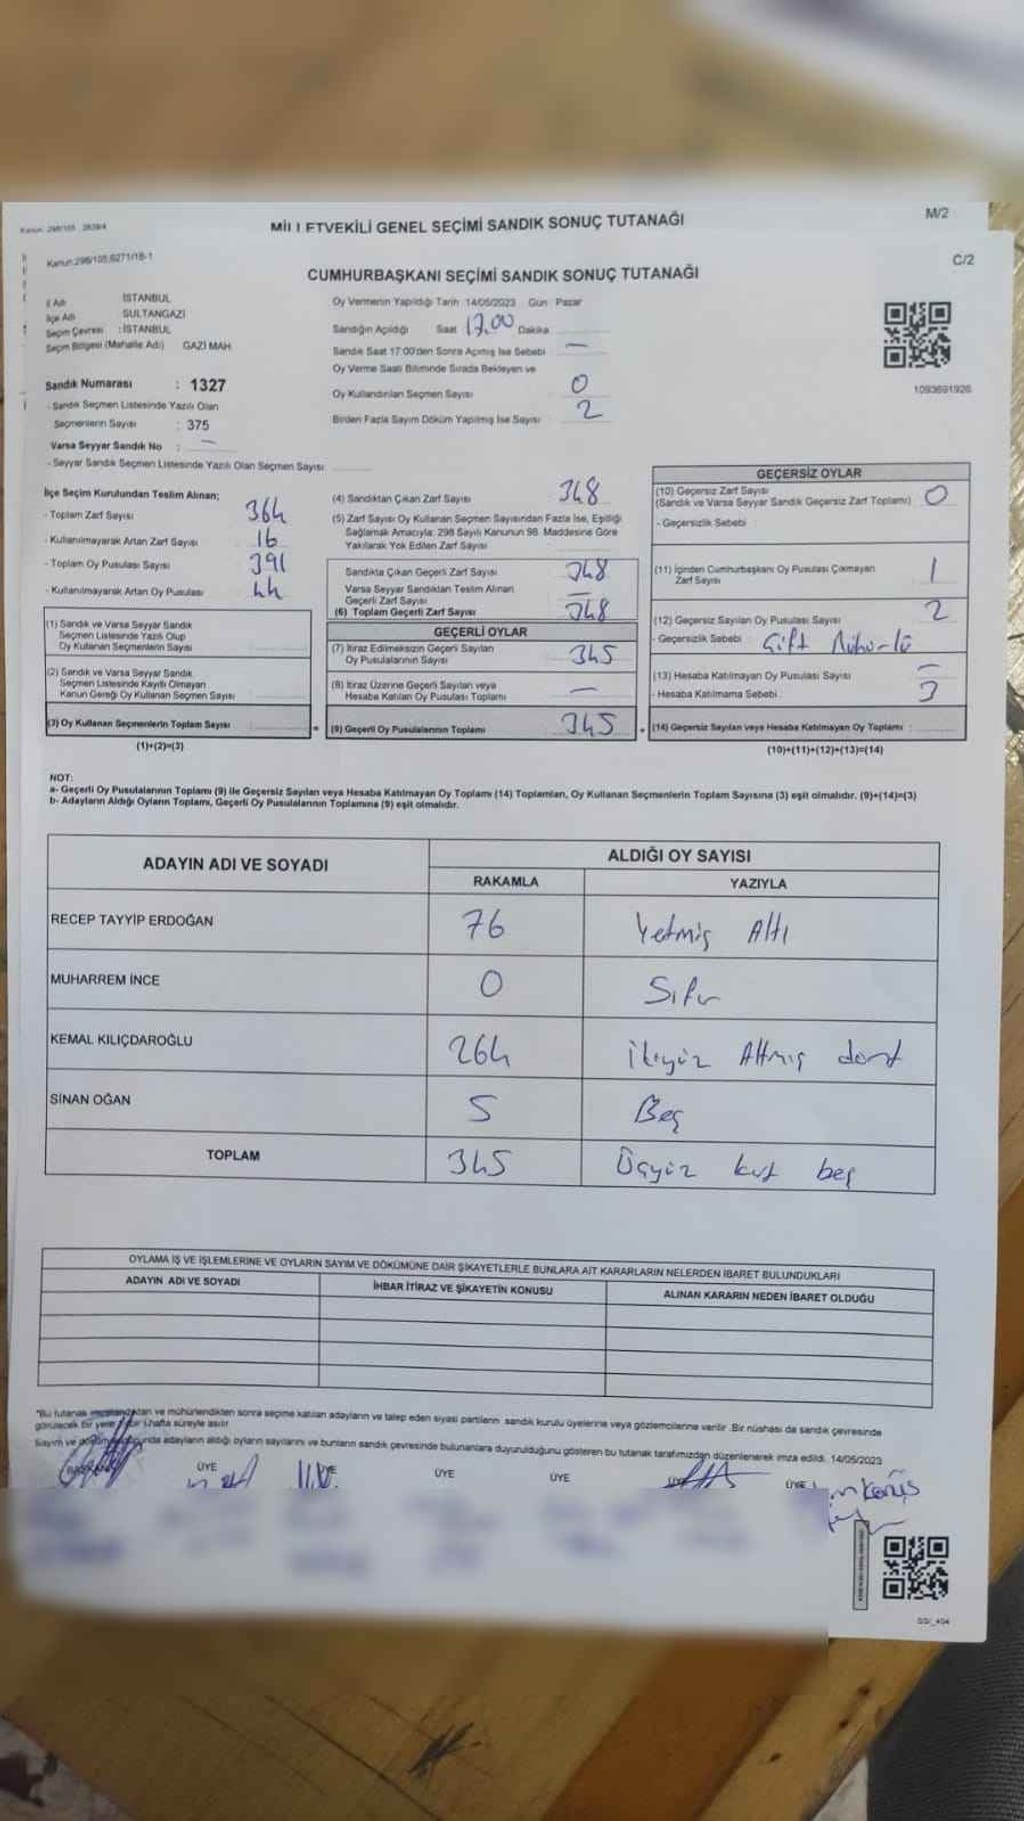 MİLLETVEKİLİ GENEL SEÇİMİ SANDIK SONUÇ TUTANAĞI
M/2
Kanun:298/105,6271/18-1
C/2
CUMHURBAŞKANI SEÇİMİ SANDIK SONUÇ TUTANAĞI
İl Adı İSTANBUL
İlçe Adı SULTANGAZİ
Seçim Çevresi :İSTANBUL
Seçim Bölgesi (Mahalle Adı) GAZİ MAH.
Oy Vermenin Yapıldığı Tarih 14/05/2023 Gün Pazar
Sandığın Açıldığı Saat 17.00 Dakika
Sandık Saat 17:00'den Sonra Açılmış İse Sebebi —
Oy Verme Saati Bitiminde Sırada Bekleyen ve
Oy Kullandırılan Seçmen Sayısı 0
Birden Fazla Sayım Döküm Yapılmış İse Sayısı 2
1093691926
Sandık Numarası : 1327
- Sandık Seçmen Listesinde Yazılı Olan
Seçmenlerin Sayısı : 375
Varsa Seyyar Sandık No : —
- Seyyar Sandık Seçmen Listesinde Yazılı Olan Seçmen Sayısı
İlçe Seçim Kurulundan Teslim Alınan;
- Toplam Zarf Sayısı 364
- Kullanılmayarak Artan Zarf Sayısı 16
- Toplam Oy Pusulası Sayısı 391
- Kullanılmayarak Artan Oy Pusulası 44
(1) Sandık ve Varsa Seyyar Sandık
Seçmen Listesinde Yazılı Olup
Oy Kullanan Seçmenlerin Sayısı
(2) Sandık ve Varsa Seyyar Sandık
Seçmen Listesinde Kayıtlı Olmayan
Kanun Gereği Oy Kullanan Seçmen Sayısı
(3) Oy Kullanan Seçmenlerin Toplam Sayısı
(1)+(2)=(3)
(4) Sandıktan Çıkan Zarf Sayısı 348
(5) Zarf Sayısı Oy Kullanan Seçmen Sayısından Fazla İse, Eşitliği
Sağlamak Amacıyla; 298 Sayılı Kanunun 98. Maddesine Göre
Yakılarak Yok Edilen Zarf Sayısı
Sandıkta Çıkan Geçerli Zarf Sayısı 348
Varsa Seyyar Sandıktan Teslim Alınan
Geçerli Zarf Sayısı —
(6) Toplam Geçerli Zarf Sayısı 348
GEÇERLİ OYLAR
(7) İtiraz Edilmeksizin Geçerli Sayılan
Oy Pusulalarının Sayısı 345
(8) İtiraz Üzerine Geçerli Sayılan veya
Hesaba Katılan Oy Pusulası Toplamı —
(9) Geçerli Oy Pusulalarının Toplamı 345
GEÇERSİZ OYLAR
(10) Geçersiz Zarf Sayısı
(Sandık ve Varsa Seyyar Sandık Geçersiz Zarf Toplamı) 0
- Geçersizlik Sebebi
(11) İçinden Cumhurbaşkanı Oy Pusulası Çıkmayan
Zarf Sayısı 1
(12) Geçersiz Sayılan Oy Pusulası Sayısı 2
- Geçersizlik Sebebi Çift Mühürlü
(13) Hesaba Katılmayan Oy Pusulası Sayısı —
- Hesaba Katılmama Sebebi 3
(14) Geçersiz Sayılan veya Hesaba Katılmayan Oy Toplamı :
(10)+(11)+(12)+(13)=(14)
NOT:
a- Geçerli Oy Pusulalarının Toplamı (9) ile Geçersiz Sayılan veya Hesaba Katılmayan Oy Toplamı (14) Toplamları, Oy Kullanan Seçmenlerin Toplam Sayısına (3) eşit olmalıdır. (9)+(14)=(3)
b- Adayların Aldığı Oyların Toplamı, Geçerli Oy Pusulalarının Toplamına (9) eşit olmalıdır.
ADAYIN ADI VE SOYADI
ALDIĞI OY SAYISI
RAKAMLA YAZIYLA
RECEP TAYYİP ERDOĞAN 76 Yetmiş Altı
MUHARREM İNCE 0 Sıfır
KEMAL KILIÇDAROĞLU 264 İkiyüz Altmış dört
SİNAN OĞAN 5 Beş
TOPLAM 345 Üçyüz kırk beş
OYLAMA İŞ VE İŞLEMLERİNE VE OYLARIN SAYIM VE DÖKÜMÜNE DAİR ŞİKAYETLERLE BUNLARA AİT KARARLARIN NELERDEN İBARET BULUNDUKLARI
ADAYIN ADI VE SOYADI İHBAR İTİRAZ VE ŞİKAYETİN KONUSU ALINAN KARARIN NEDEN İBARET OLDUĞU
"Bu tutanak ve mühürlendikten sonra seçime katılan adayların ve talep eden siyasi partilerin sandık kurulu üyelerine veya gözlemcilerine verilir. Bir nüshası da sandık çevresinde
görülecek bir yere hafta süreyle asılır.
Sayım ve adayların aldığı oyların sayılarını ve bunların sandık çevresinde bulunanlara duyurulduğunu gösteren bu tutanak tarafımızdan düzenlenerek imza edildi. 14/05/2023
BAŞKAN ÜYE ÜYE ÜYE ÜYE ÜYE ÜYE